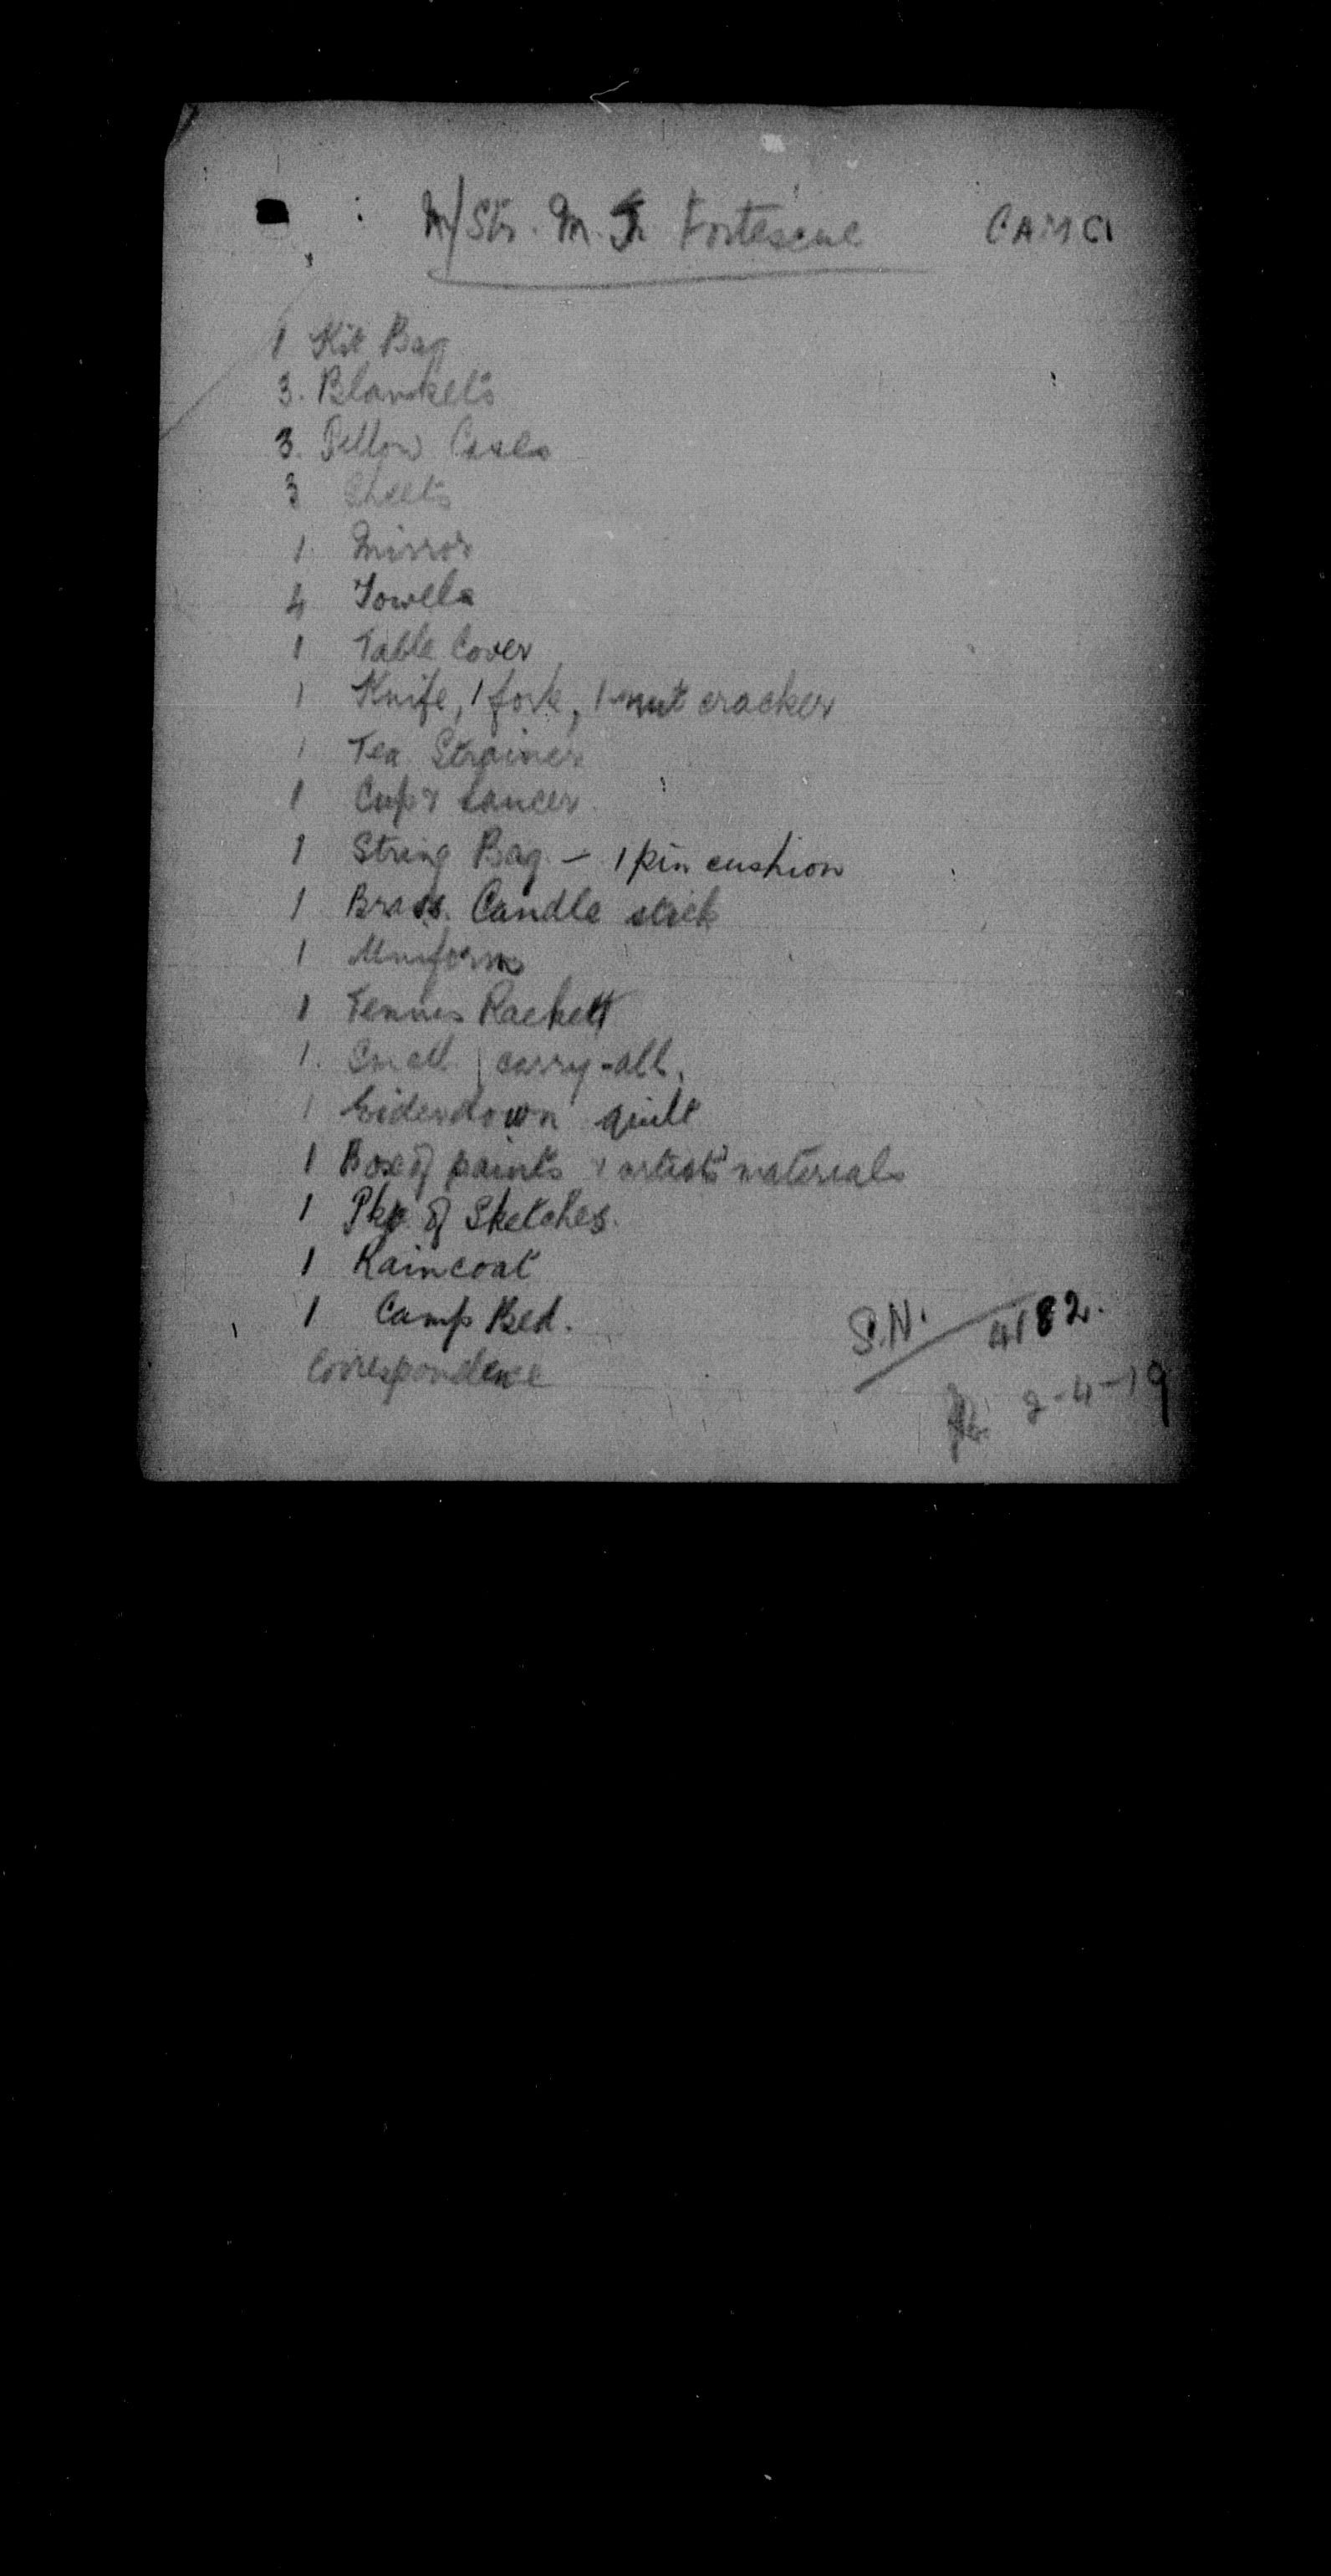 N/Str. M. J. Fortescue CAMC
1 Kit Bag
3. Blankets
3. Pillow Cases
3 Sheets
1. Mirror
4 Towels
1 Table Cover
1 Knife, 1 fork, 1 nut cracker
1 Tea Strainer
1 Cup & saucer.
1 String Bag. — 1 pin cushion
1 Brass. Candle stick
1 Uniform
1 Tennis Rackett
1. Small carry-all.
1 Eiderdown quilt
1 Box of paints & artists' materials
1 Pkg. of Sketches.
1 Raincoat
1 Camp Bed.
Correspondence
S.N. 4182.
2-4-19